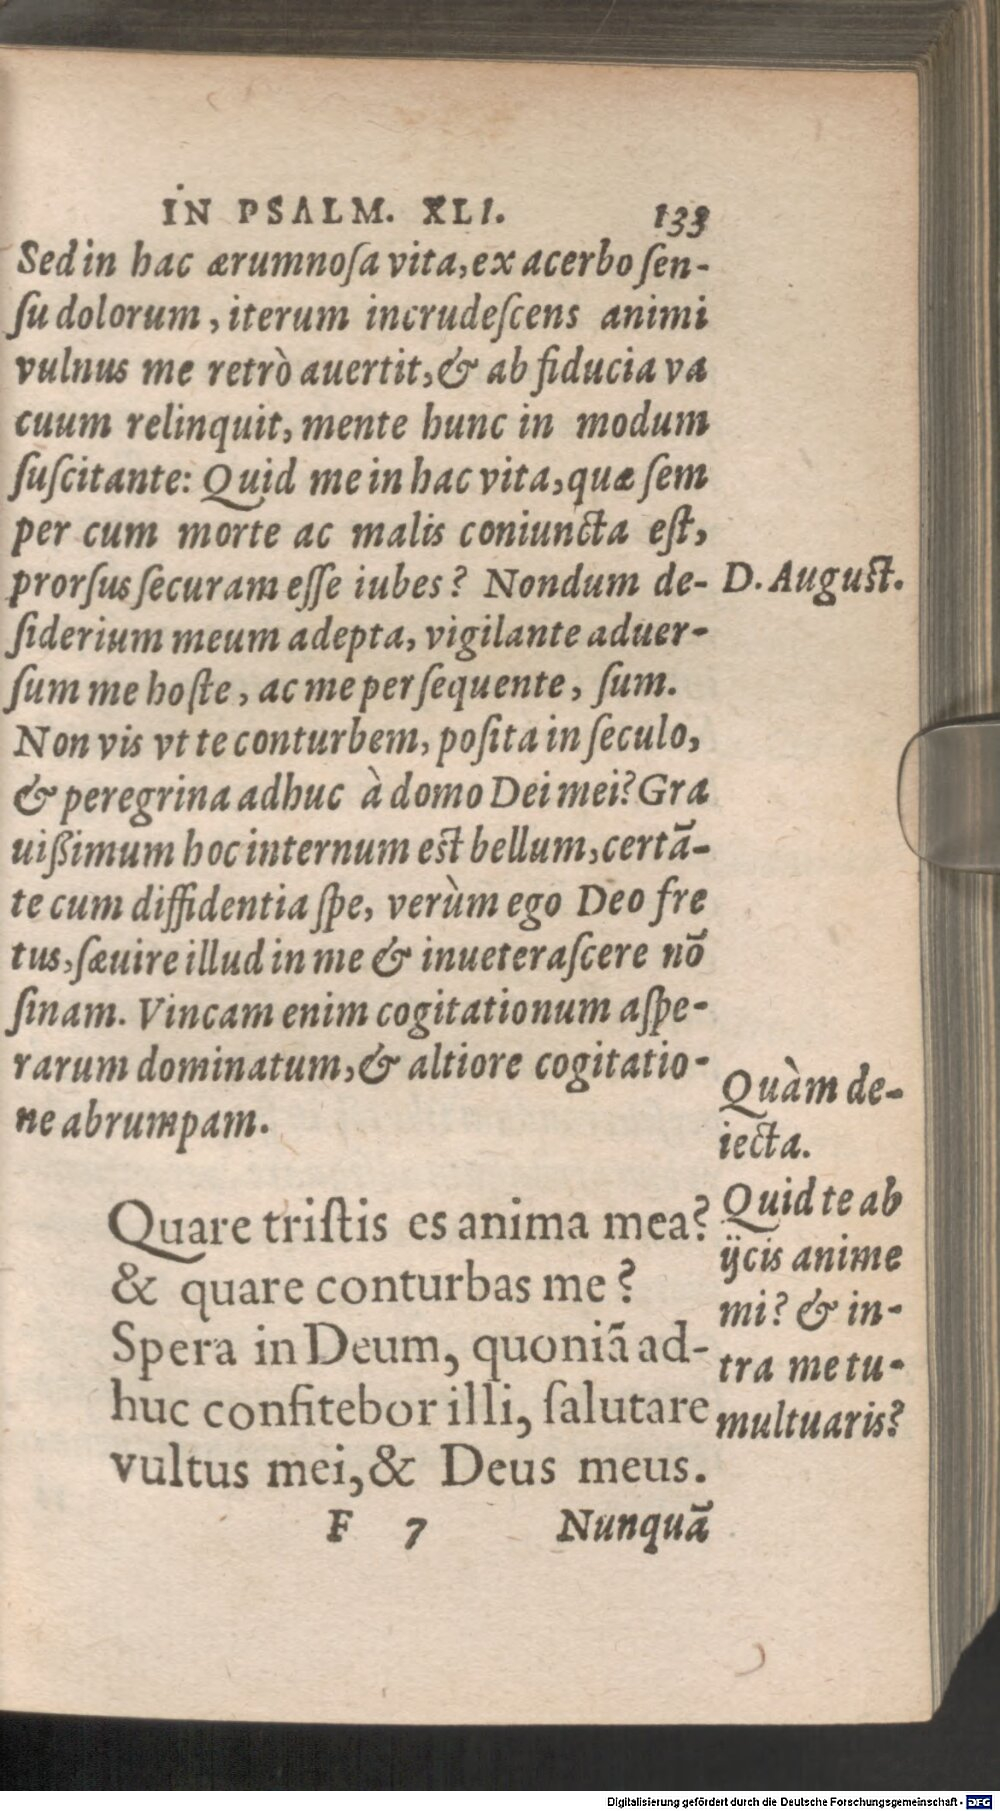 IN PSALM. XLI. 133
Sed in hac ærumnoſa vita, ex acerbo ſen-
ſu dolorum, iterum incrudeſcens animi
vulnus me retrò auertit, & ab fiducia va
cuum relinquit, mente hunc in modum
ſuſcitante: Quid me in hac vita, quæ ſem
per cum morte ac malis coniuncta eſt,
prorſus ſecuram eſſe iubes? Nondum de-
ſiderium meum adepta, vigilante aduer-
ſum me hoſte, ac me perſequente, ſum.
Non vis vt te conturbem, poſita in ſeculo,
& peregrina adhuc à domo Dei mei? Gra
uißimum hoc internum eſt bellum, certā-
te cum diffidentia ſpe, verùm ego Deo fre
tus, ſæuire illud in me & inueteraſcere nō
ſinam. Vincam enim cogitationum aſpe-
rarum dominatum, & altiore cogitatio-
ne abrumpam.
D. Auguſt.
Quare triſtis es anima mea?
& quare conturbas me?
Spera in Deum, quoniā ad-
huc confitebor illi, ſalutare
vultus mei, & Deus meus.
Quàm de-
iecta.
Quid te ab
ijcis anime
mi? & in-
tra me tu-
multuaris?
F 7 Nunquā
Digitalisierung gefördert durch die Deutsche Forschungsgemeinschaft - DFG